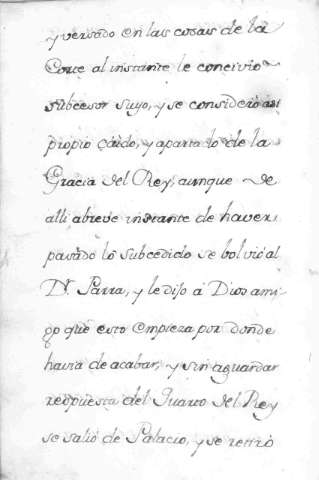 y versado en las cosas de la
Corte al instante le concivio
subcesor suyo, y se consideró asi
propio caido, y apartado de la
Gracia del Rey, aunque de
alli abreve instante de haver
pasado lo subcedido se bolvió al
Dr. Parra, y le dijo á Dios ami-
go que esto empieza por donde
havia de acabar, y sin aguardar
respuesta del Quarto del Rey
se salió de Palacio, y se retiró